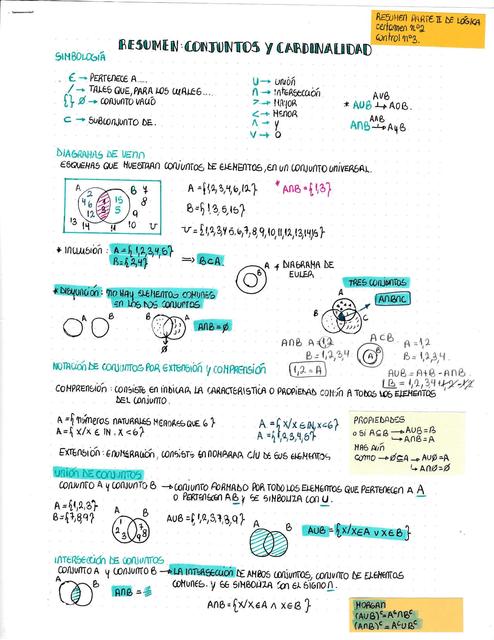 RESUMEN PARTE II DE LÓGICA
certamen nº2
control nº3.
RESUMEN: CONJUNTOS Y CARDINALIDAD
SIMBOLOGÍA
∈ → PERTENECE A....
/ → TALES QUE, PARA LOS CUALES....
{} ∅ → CONJUNTO VACÍO
⊂ → SUBCONJUNTO DE.
∪ → UNIÓN
∩ → INTERSECCIÓN
> → MAYOR
< → MENOR
∧ → Y
∨ → O
AUB
* AUB → AOB.
A∩B → AyB
DIAGRAMAS DE VENN
ESQUEMAS QUE MUESTRAN CONJUNTOS DE ELEMENTOS, EN UN CONJUNTO UNIVERSAL.
A = {1,2,3,4,6,12}
* A∩B = {1,3}
B = {1,3,5,15}
U = {1,2,3,4,5,6,7,8,9,10,11,12,13,14,15}
* INCLUSIÓN : A = {1,2,3,4,5}
B = {2,4}
⇒ B⊂A
DIAGRAMA DE
EULER
* DISYUNCIÓN: NO HAY ELEMENTOS COMUNES
EN LOS DOS CONJUNTOS
A∩B = ∅
TRES CONJUNTOS
A∩B∩C
A∩B A = 1,2
B = 1,2,3,4
1,2 = A
A⊂B. A = 1,2
B = 1,2,3,4.
AUB = A+B - A∩B.
NOTACIÓN DE CONJUNTOS POR EXTENSIÓN Y COMPRENSIÓN
COMPRENSIÓN : CONSISTE EN INDICAR LA CARACTERISTICA O PROPIEDAD COMÚN A TODOS LOS ELEMENTOS
DEL CONJUNTO.
A = {números NATURALES MENORES QUE 6}
A = {X/X ∈ IN. X < 6}
A = {X/X ∈ IN, X<6}
A = {1,2,3,4,5}
EXTENSIÓN : ENUMERACIÓN, CONSISTE EN NOMBRAR C/U DE SUS ELEMENTOS
PROPIEDADES
o SÍ A⊆B → AUB=B
→ A∩B=A
MAS AUN
COMO → ∅⊆A → AU∅=A
→ A∩∅=∅
UNIÓN DE CONJUNTOS
CONJUNTO A Y CONJUNTO B → CONJUNTO FORMADO POR TODO LOS ELEMENTOS QUE PERTENECEN A A
O PERTENECEN A B Y SE SIMBOLIZA CON U.
A = {1,2,3}
B = {7,8,9}
AUB = {1,2,3,7,8,9}
AUB = {X/X∈A ∨ X∈B}
INTERSECCIÓN DE CONJUNTOS
CONJUNTO A Y CONJUNTO B → LA INTERSECCIÓN DE AMBOS CONJUNTOS, CONJUNTO DE ELEMENTOS
COMUNES. Y SE SIMBOLIZA SON EL SIGNO ∩.
A∩B =
A∩B = {X/X∈A ∧ X∈B}
MORGAN
(AUB)ᶜ = Aᶜ∩Bᶜ
(A∩B)ᶜ = AᶜUBᶜ